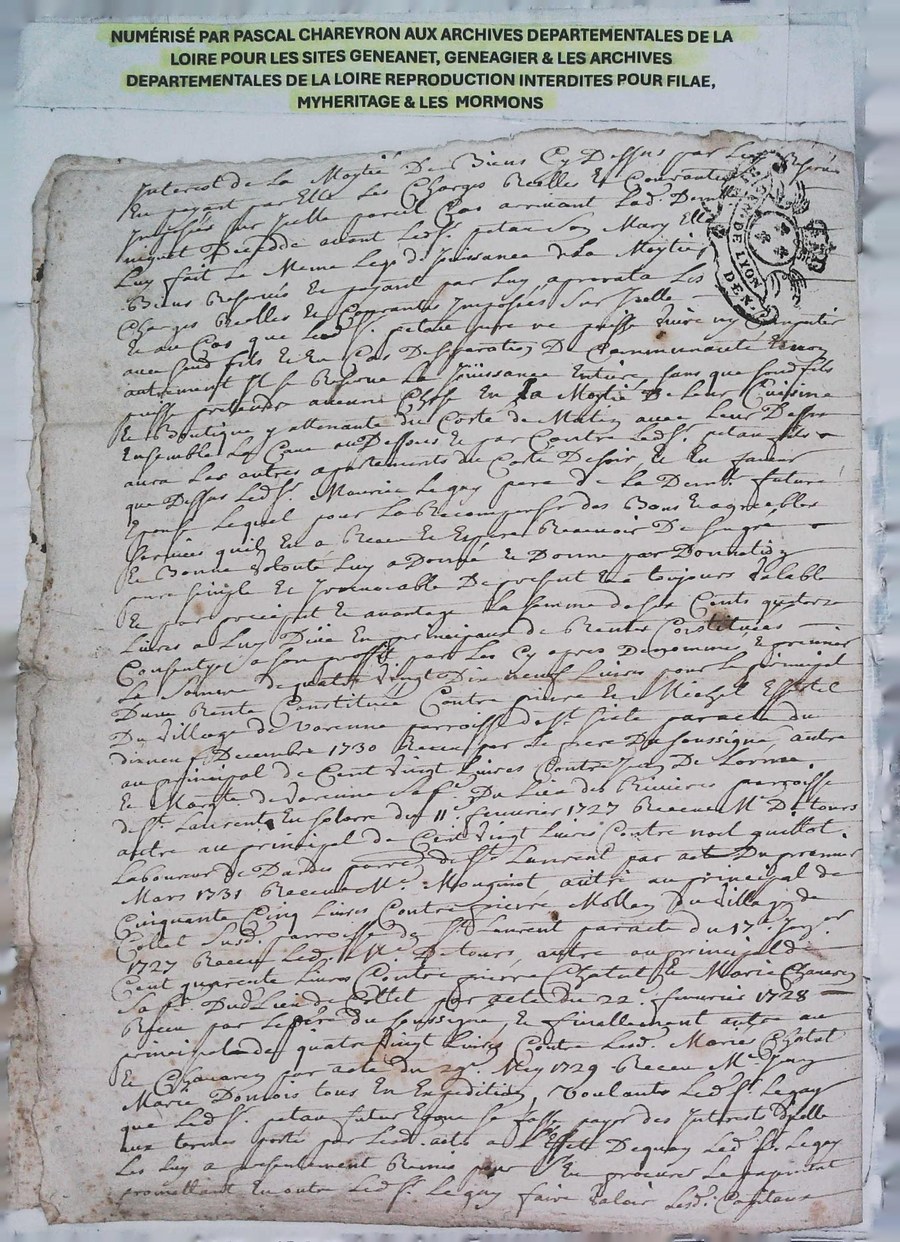 NUMÉRISÉ PAR PASCAL CHAREYRON AUX ARCHIVES DEPARTEMENTALES DE LA
LOIRE POUR LES SITES GENEANET, GENEAGIER & LES ARCHIVES
DEPARTEMENTALES DE LA LOIRE REPRODUCTION INTERDITES POUR FILAE,
MYHERITAGE & LES MORMONS
Interest de La Moytié De Biens Cy Dessus par Luy Reservés
En payant par Elle Les Charges Reelles Et Courantes
Imposés sur Icelle pareil Cas arrivant Lad. De
Decedde avant Led. Sr. petau Son Mary Elle
Luy fait Le Meme Legs de Jouissance de La Moytié
Biens Reservés En payant par Luy, aprorata Les
Charges Reelles Et Courantes Imposées Sur Icelle
Et au Cas que Led. Sr. petau pere ne puisse vivre ny
avec Sond. fils Et En Cas De Separation De Communauté
autrement Il Se Reserve La Joüissance Entiere Sans que Sond. fils
puisse pretendre aucune Chose En La Moytié De Leur Cuisine
Et Boutique y attenante du Costé de Matin avec Leur Dessus
Ensemble La Cave au Dessous Et par Contre Led. Sr. petau fils
aura Les autres apartements du Costé De Soir, Et En faveur
que Dessus Led. Sr. Maurice Legay pere de La Dem. future
Epouse Lequel pour La Recompenser des Bons Et agreables
Services quil En a Receu Et Espere Recevoir De Sugre
Et Bonne Volonté Luy a Donné Et Donne par Donnation
pure Simple Et Irrevocable De present Et a toujours Valable
Et par preciput Et avantage La Somme de Six Cents quatorze
Livres a Luy Düe En principaux de Rentes Constituées
a Son profit par Les Cy apres Denommés, Et premier
La Somme de quatre Vingt Dix neuf Livres pour Le principal
Dune Rente Constituée Contre pierre Et Michel
Du Village de Varenne parroisse de St. Sixte par acte du
dix neuf Decembre 1730 Receu par Le frere Du Soussigné, autre
au principal de Cent Vingt Livres Contre Jean De Lorme
Et Marie de Varenne Sa fe. Du Lieu des Rivieres parroisse
de St. Laurent En Solorre du 11e. fevrier 1727 Receu Me. Detours
autre au principal de Cent Vingt Livres Contre noel quittot
Laboureur de parroe. de St. Laurent par acte Du premier
Mars 1731 Receu Me. Mouginot, autre au principal de
Cinquante Cinq Livres Contre pierre Mollen Du Village de
Collet Susd. parroisse de St. Laurent par acte du 17e.
1727 Receu Led. Me. Detours, autre au principal de
Cent quarente Livres Contre pierre Chatut Et Marie Chavaren
Sa fe. Dud. Lieu de Collet par acte du 22e. fevrier 1728
Receu par Le pere du Soussigné, Et finallement autre au
principal de quatre Vingt Livres Contre Lesd. Maries Chatut
Et Chavaren par acte du 29e. May 1729 Receu Me.
Marie Dontois tous En Expedition, Voulants Led. Sr. Legay
que Led. Sr. petau futur Epoux Se fasse payer des Interest Dicelle
aux termes portés par Lesd. acts a Leffet Dequoy Led. Sr. Legay
Les Luy a presentement Remis pour Sen procurer Le payement
promettant En outre Led. Sr. Legay faire Valoir Lesd. Capitaux
GEN. DE LYON